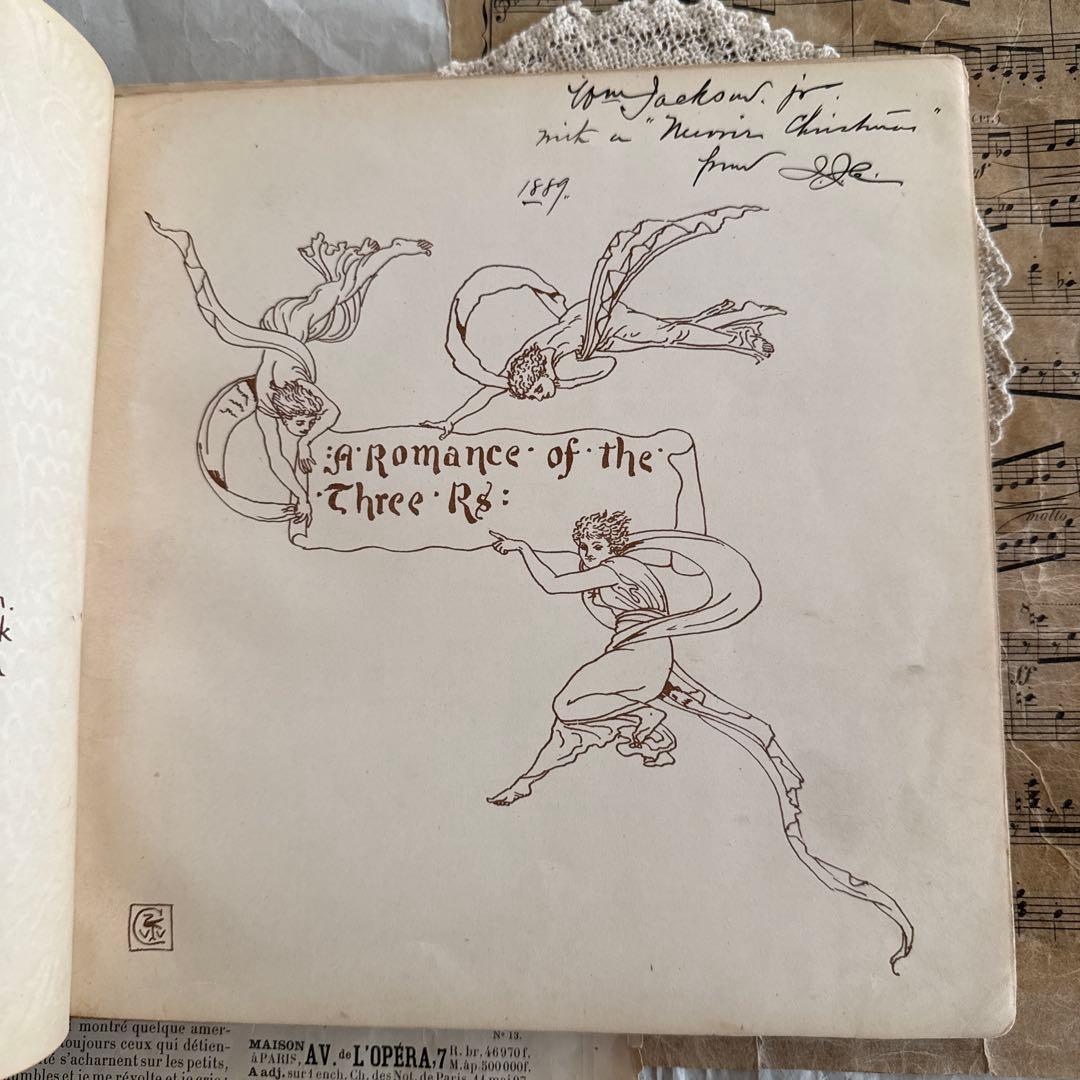 Wm Jackson. jr.
with a "Merrie Christmas"
from J.J.C.
1889.
:A·Romance·of·the·
·Three·Rs:
n.
k
montré quelque amer-
toujours ceux qui détien-
té s'acharnent sur les petits,
umbles et je me révolte et je crie:
Nº 13.
MAISON AV. de L'OPÉRA, 7 R. br. 46970f.
à PARIS, M. àp. 500000f.
A adj. sur 1 ench. Ch. des Not. de Paris
(Pt.)
molto
ff